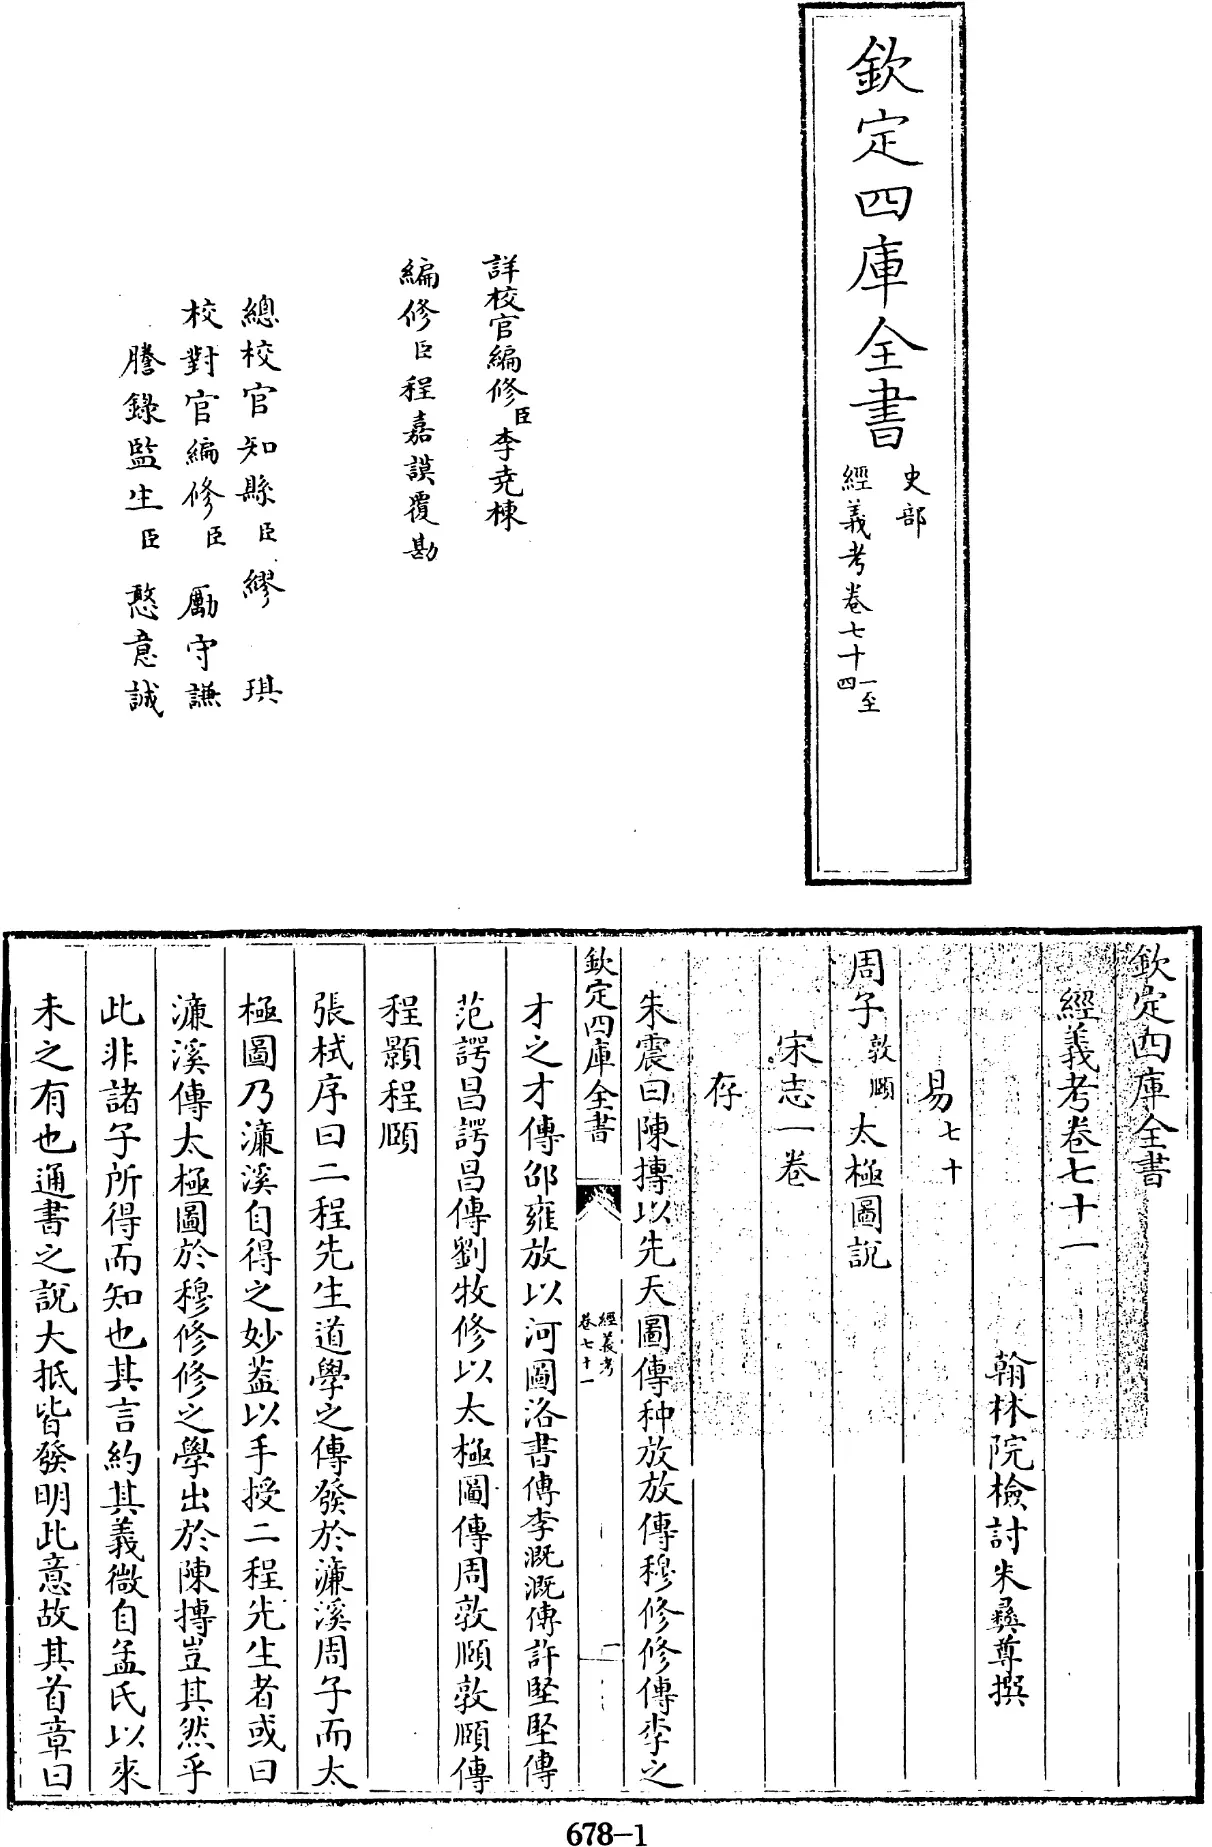 欽定四庫全書
史部
經義考卷七十一至
四
詳校官編修臣李堯棟
編修臣程嘉謨覆勘
總校官知縣臣繆琪
校對官編修臣勵守謙
謄錄監生臣憨意誠
欽定四庫全書
經義考卷七十一
翰林院檢討朱彝尊撰
易七十
周子敦頤太極圖說
宋志一卷
存
朱震曰陳摶以先天圖傳种放放傳穆修修傳李之
欽定四庫全書
經義考
卷七十一
一
才之才傳邵雍放以河圖洛書傳李溉溉傳許堅堅傳
范諤昌諤昌傳劉牧修以太極圖傳周敦頤敦頤傳
程顥程頤
張栻序曰二程先生道學之傳發於濂溪周子而太
極圖乃濂溪自得之妙葢以手授二程先生者或曰
濂溪傳太極圖於穆修修之學出於陳摶豈其然乎
此非諸子所得而知也其言約其義微自孟氏以來
未之有也通書之說大抵皆發明此意故其首章曰
678-1